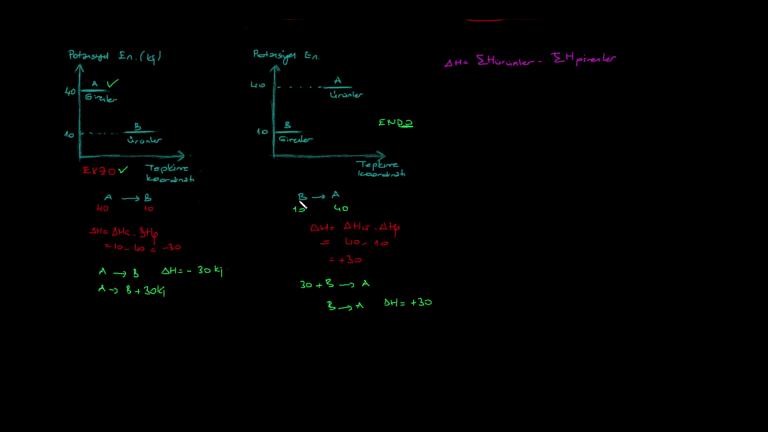 Potansiyel En. (kj)
40
A ✓
Girenler
10
B
Ürünler
EKZO ✓
Tepkime
koordinatı
A → B
40 10
= 10 - 40 = -30
A → B ΔH = - 30 kj
A → B + 30kj
Potansiyel En.
40
A
Ürünler
10
B
Girenler
ENDO
Tepkime
koordinatı
B → A
10 40
ΔH = ΔHür - ΔHg
= 40 - 10
= +30
30 + B → A
B → A ΔH = +30
ΔH = ΣHürünler - ΣHgirenler